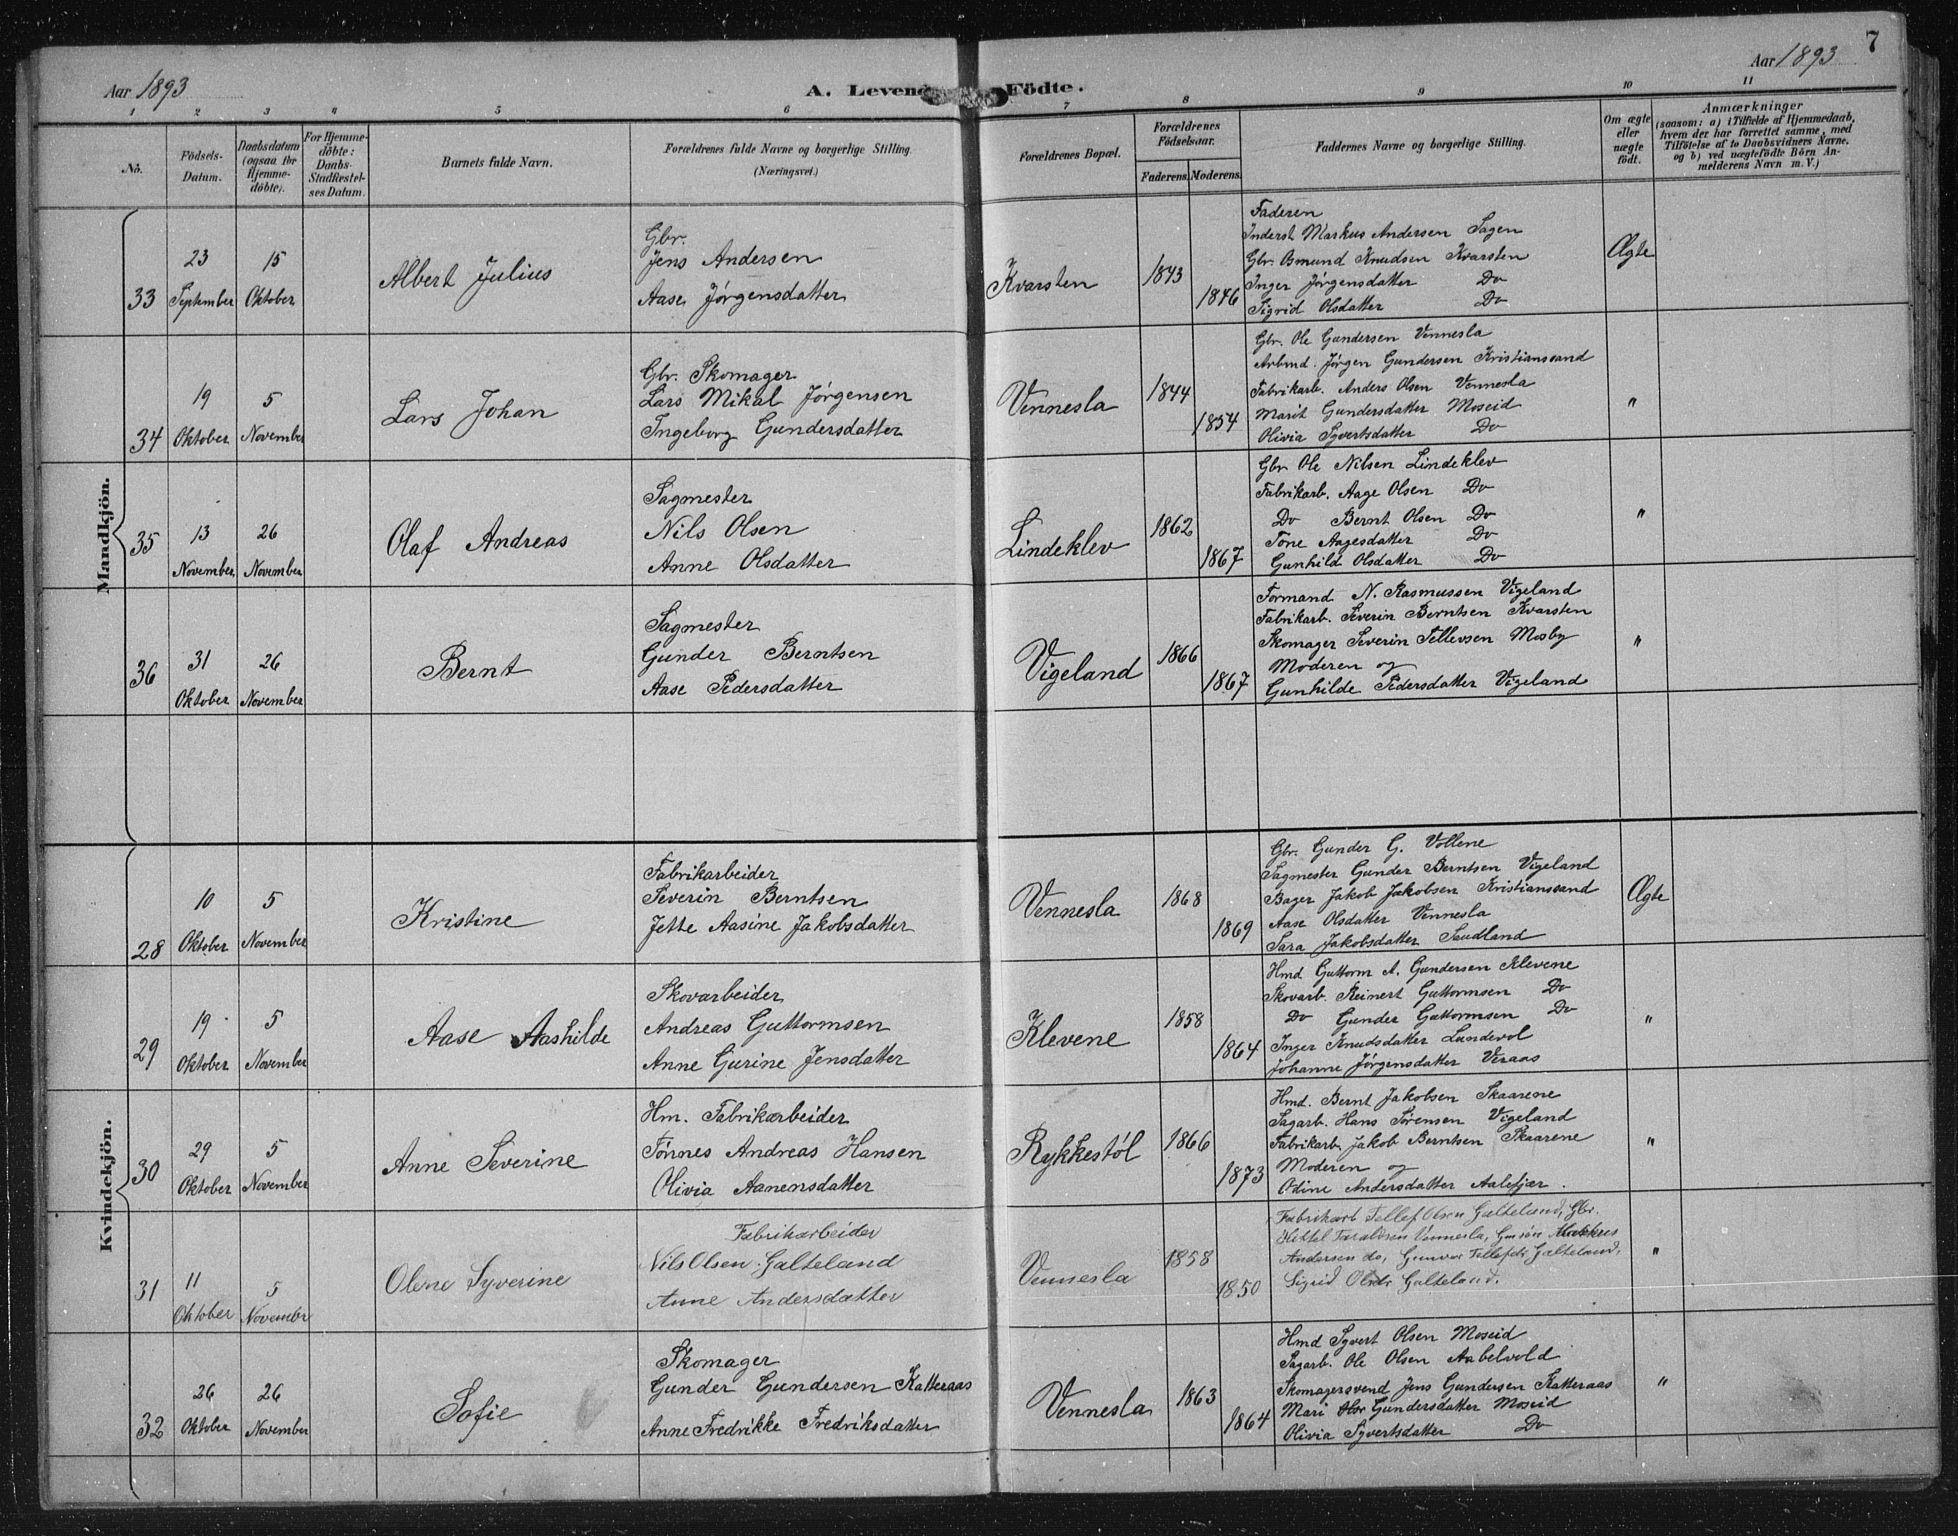 Aar 1893
A. Levende Födte.
Aar 1893
7
1 2 3 4 5 6 7 8 9 10 11
No.
Födsels-Datum.
Daabsdatum (ogsaa for Hjemmedöbte).
For Hjemmedöbte: Daabs-Stadfæstelses Datum.
Barnets fulde Navn.
Forældrenes fulde Navne og borgerlige Stilling. (Næringsvei.)
Forældrenes Bopæl.
Forældrenes Födselsaar.
Faderens. Moderens.
Faddernes Navne og borgerlige Stilling.
Om ægte eller uægte födt.
Anmærkninger
(saasom: a) i Tilfælde af Hjemmedaab,
hvem der har forrettet samme, med
Tilföielse af to Daabsvidners Navne,
og b) ved uægtefödte Börn An-
melderens Navn m. V.)
Mandkjön.
33
23 September
15 Oktober
Albert Julius
Gbr.
Jens Andersen
Aase Jørgensdatter
Kvarsten
1843
1846
Faderen
Inderst Markus Andersen Sagen
Gbr. Omund Knudsen Kvarsten
Inger Jørgensdatter Do
Sigrid Olsdatter Do
Ægte
34
19 Oktober
5 November
Lars Johan
Gbr. Skomager
Lars Mikal Jørgensen
Ingeborg Gundersdatter
Vennesla
1844
1854
Gbr. Ole Gundersen Vennesla
Arbmd. Jørgen Gundersen Kristianssand
Fabrikarb. Anders Olsen Vennesla
Marit Gundersdatter Moseid
Olivia Syvertsdatter Do
"
35
13 November
26 November
Olaf Andreas
Sagmester
Nils Olsen
Anne Olsdatter
Lindeklev
1862
1867
Gbr Ole Nilsen Lindeklev
Fabrikarb. Aage Olsen Do
Do Bernt Olsen Do
Tone Aagesdatter Do
Gunhild Olsdatter Do
"
36
31 Oktober
26 November
Bernt
Sagmester
Gunder Berntsen
Aase Pedersdatter
Vigeland
1866
1867
Formand N. Rasmussen Vigeland
Fabrikarb. Severin Berntsen Kvarsten
Skomager Severin Tellevsen Mosby
Moderen og
Gunhilde Pedersdatter Vigeland
"
Kvindekjön.
28
10 Oktober
5 November
Kristine
Fabrikarbeider
Severin Berntsen
Jette Aasine Jakobsdatter
Vennesla
1868
1869
Gbr. Gunder G. Vollene
Sagmester Gunder Berntsen Vigeland
Bager Jakob Jakobsen Kristianssand
Aase Olsdatter Vennesla
Sara Jakobsdatter Saudland
Ægte
29
19 Oktober
5 November
Aase Aashilde
Skovarbeider
Andreas Guttormsen
Anne Gurine Jensdatter
Klevene
1858
1864
Hmd Guttorm A. Gundersen Klevene
Skovarb. Reinert Guttormsen Do
Do Gunder Guttormsen Do
Inger Knudsdatter Lundevol
Johanne Jørgensdatter Veraas
"
30
29 Oktober
5 November
Anne Severine
Hm. Fabrikarbeider
Tønnes Andreas Hansen
Olivia Aanensdatter
Rykkestöl
1866
1873
Hmd. Bernt Jakobsen Skaarene
Sagarb. Hans Sørensen Vigeland
Fabrikarb. Jakob Berntsen Skaarene
Moderen og
Odine Andersdatter Aalefjær.
"
31
11 Oktober
5 November
Olene Syverine
Fabrikarbeider
Nils Olsen Galteland
Anne Andersdatter
Vennesla
1858
1850
Fabrikarb Tellef Olsen Galteland, Gbr.
Kittel Taraldsen Vennesla, Markus
Andersen do, Gunvor Tellefdr Galteland,
Sigrid Olsdr Galteland.
"
32
26 Oktober
26 November
Sofie
Skomager
Gunder Gundersen Katteraas
Anne Fredrikke Fredriksdatter
Vennesla
1863
1864
Hmd Syvert Olsen Moseid
Sagarb. Ole Olsen Aabelvold
Skomagersvend Jens Gundersen Katteraas
Mari Gundersdatter Moseid
Olivia Syvertsdatter Do
"